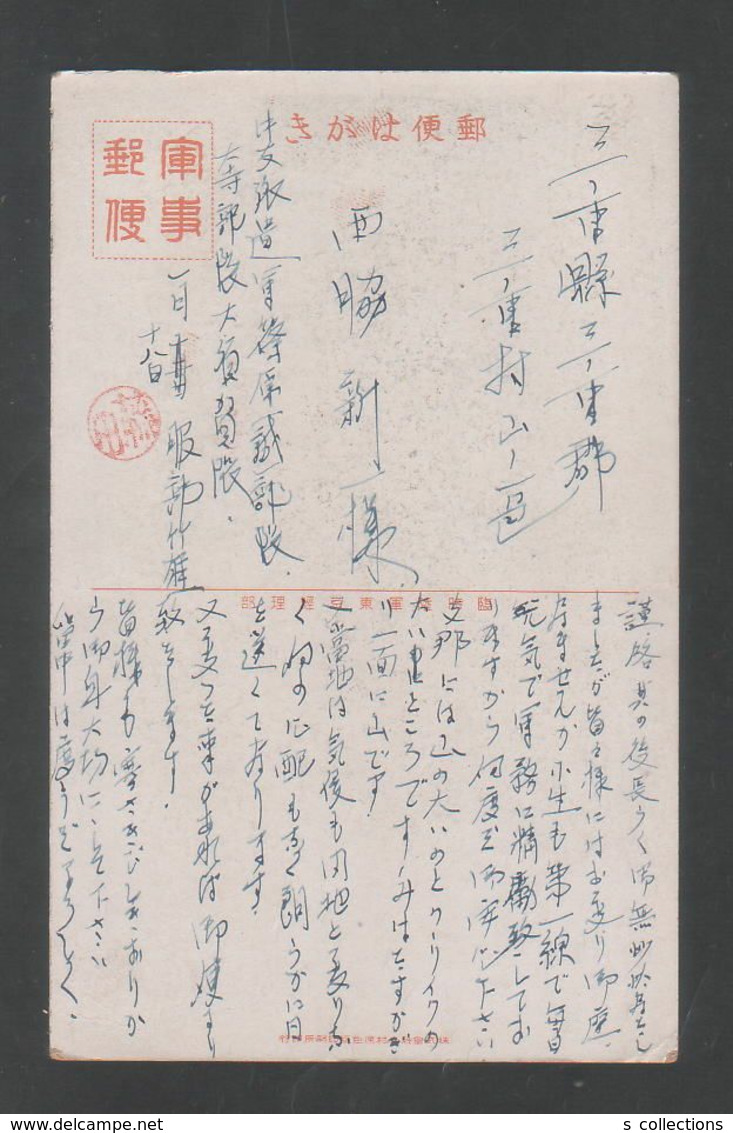 郵便はがき
軍事
郵便
三重縣三重郡
三重村山ノ一色
西脇新一様
中支派遣軍篠原誠一郎部隊
寺部隊大須賀隊
服部竹雄
十八日
臨時陸軍東京經理部
謹啓其の後長らく御無沙汰致し
ましたが皆々様にはお変り御座
居ませんか小生も第一線で毎日
元気で軍務に精勵致して居
りますから何度ぞ御安心下さい
支那には山の大いのとクーリイの
一面に山です
又当地は気候も内地と変りな
く何の心配もなく朗らかに日
を送くて居ります
又変つた事があれば御便り
致します
皆様も寒さきびしきおりか
ら御身大切にして下さい
留守中は度うぞよろしく
s collections